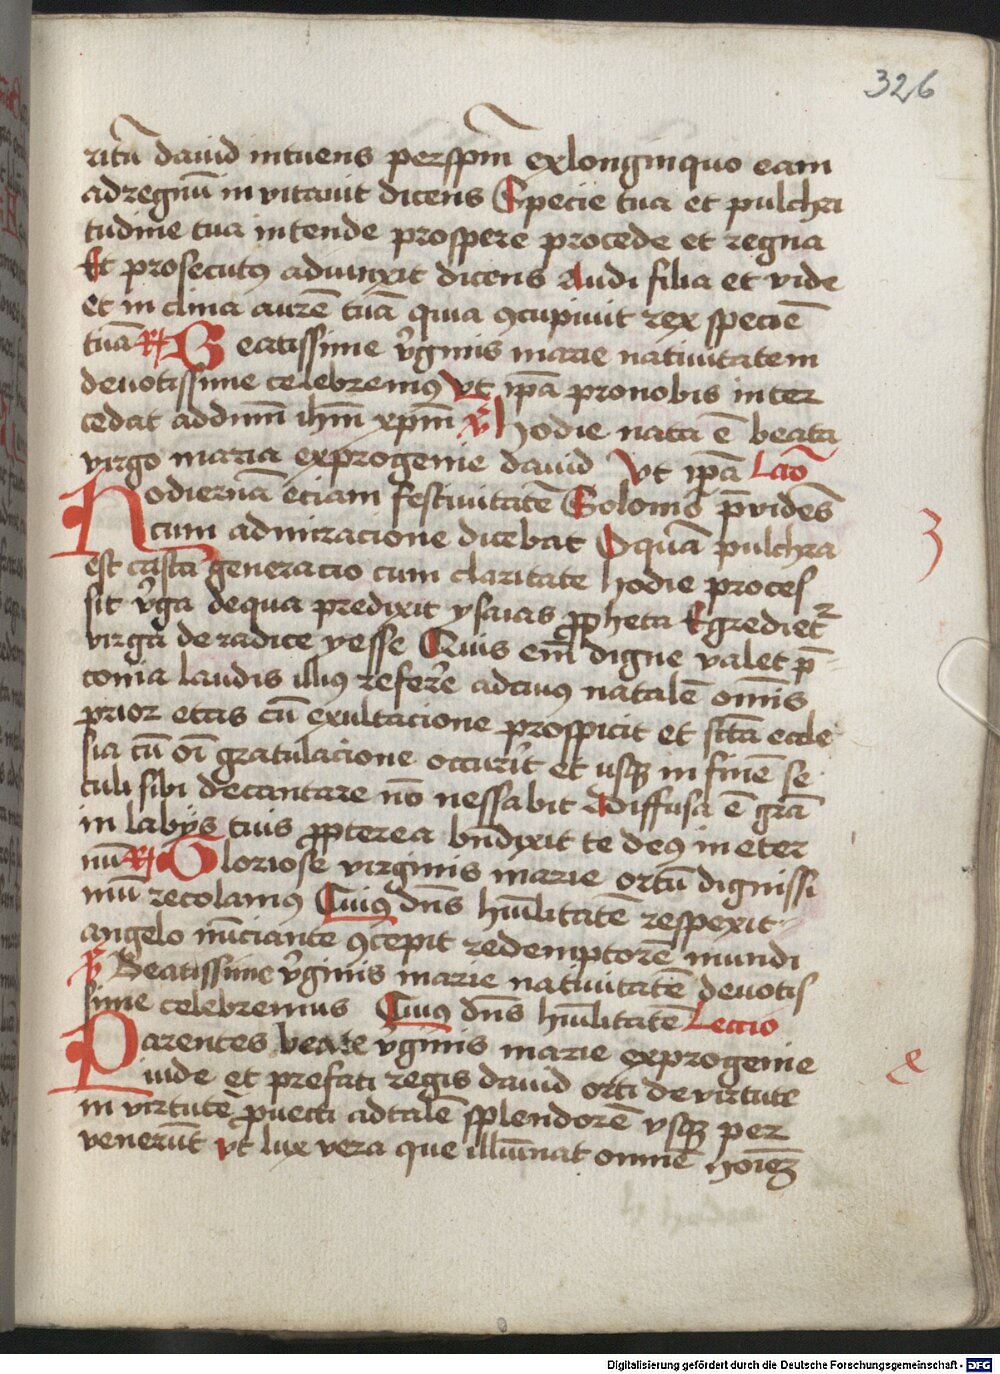 326
ritū dauid intuens per spm̄ ex longinquo eam
ad regnū in vitauit dicens Specie tua et pulchri
tudine tua intende prospere procede et regna
Et prosecutꝯ adiunxit dicens Audi filia et vide
et in clina aurē tuā quia ꝯcupiuit rex speciē
tuā R̷ Beatissime v̓ginis marie natiuitatem
deuotissime celebremꝯ Vt ip̄a pro nobis inter
cedat ad dūm ihm̄ xpm̄ V̷ Hodie nata ē beata
virgo maria ex progenie dauid Vt ip̄a Lc̄io
Hodiernā eciam festiuitatē Solomō p̄vidēs
cum admiracione dicebat O quā pulchra
est casta generacio cum claritate hodie proces
sit v̓ga de qua predixit ysaias ꝓpheta Egrediet᷑
virga de radice yesse Quis em̄ digne valet p̄
conia laudis illiꝯ refer̄e ad cuiꝯ natalē omīs
prior etas cū exultacione prospicit et sc̄tā eccle
sia cū oī gratulacione occurīt et usqꝫ in finē se
culi sibi decantare nō nessabit Diffusa ē grā
in labijs tuis ꝓpterea bn̄dixit te deꝯ in eter
nū R̷ Gloriose virginis marie ortū dignissi
mū recolamꝯ Cuiꝯ dn̄s hūilitatē respexit
angelo nūciante ꝯcepit redemptorē mundi
V̷ Beatissime v̓ginis marie natiuitatē deuotis
sime celebremus Cuiꝯ dn̄s hūilitatē Leccio
3
Parentes beate v̓ginis marie ex progenie
iude et prefati regis dauid orti de virtute
in virtutē ꝓuecti ad talē splendorē vsqꝫ per
venerūt vt lux vera que illūinat omnē hoīeꝫ
Digitalisierung gefördert durch die Deutsche Forschungsgemeinschaft - DFG